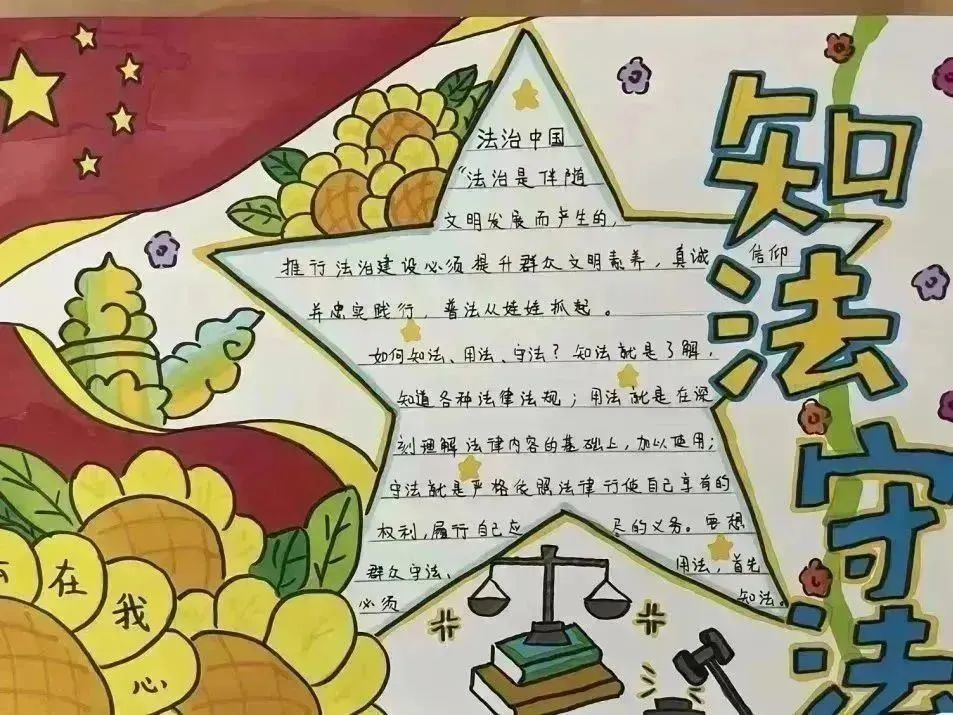 法治中国
“法治是伴随
文明发展而产生的,
推行法治建设必须提升群众文明素养,真诚信仰
并忠实践行,普法从娃娃抓起。
如何知法、用法、守法?知法就是了解,
知道各种法律法规;用法就是在深
刻理解法律内容的基础上,加以使用;
守法就是严格依照法律行使自己享有的
权利,履行自己应尽的义务。要想
群众守法、用法,首先
必须知法。
知法守法
在我心